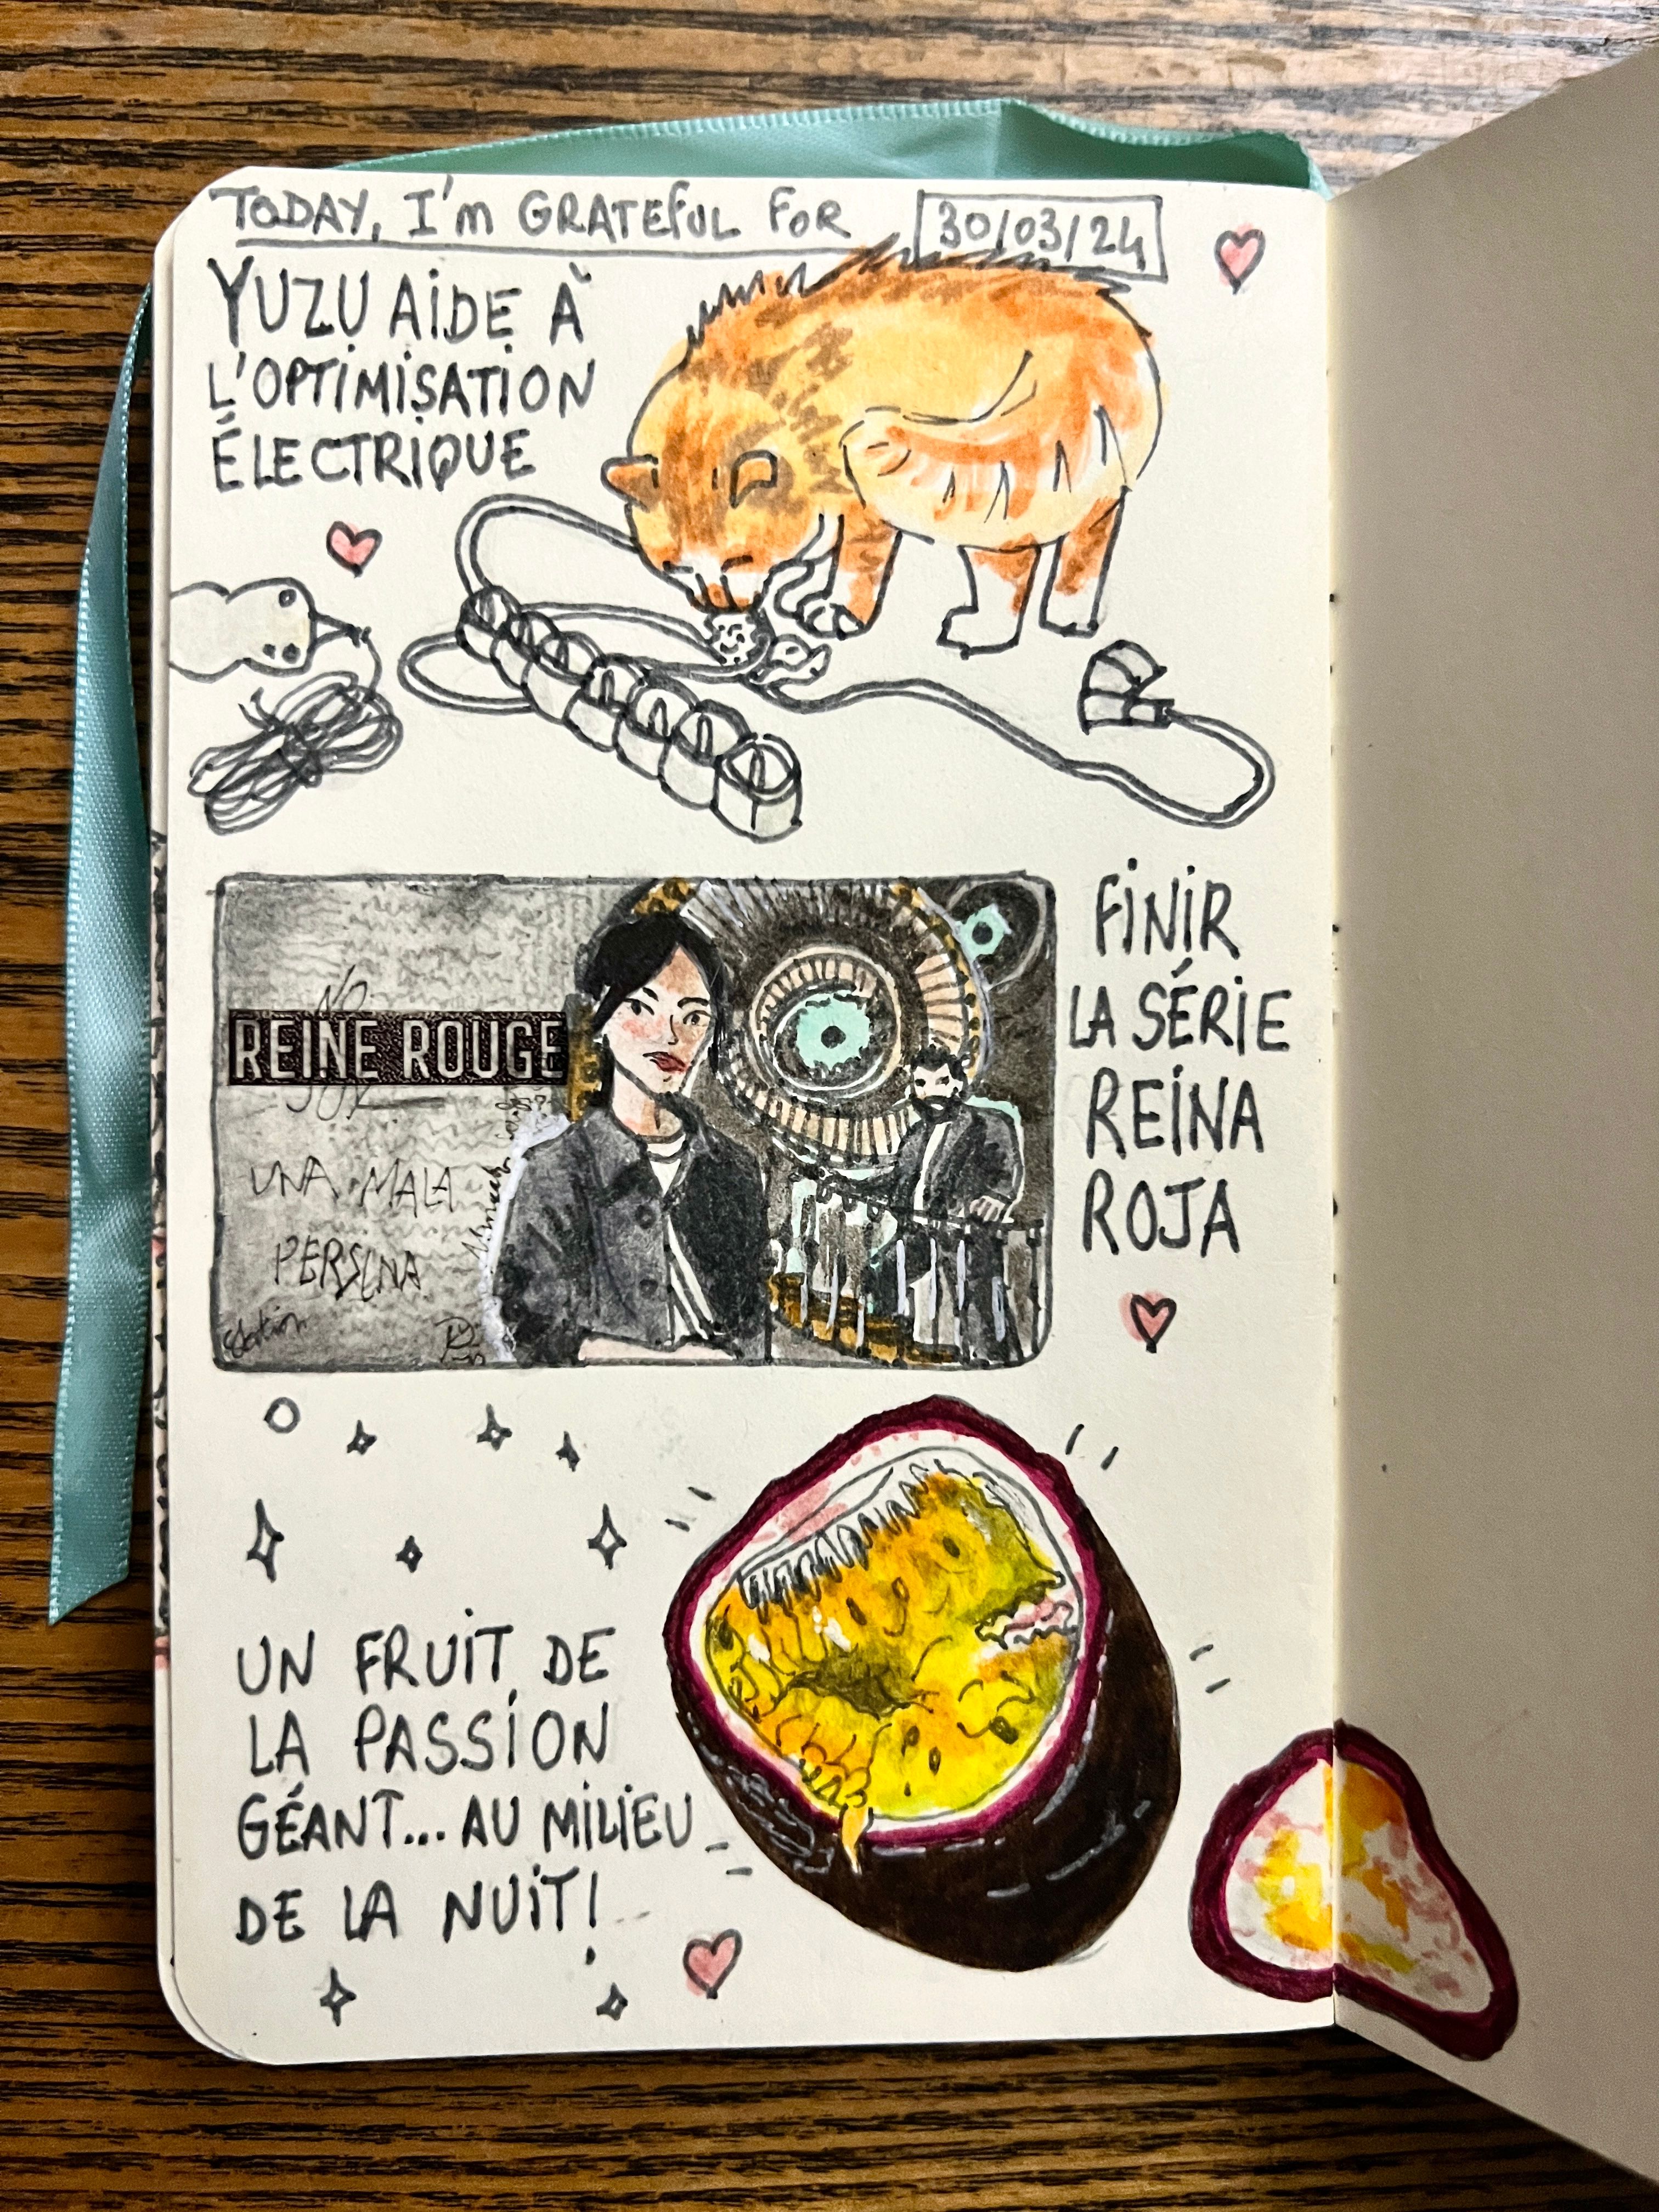 TODAY, I'm GRATEFUL FOR
30/03/24
YUZU AIDE À
L'OPTIMISATION
ÉLECTRIQUE
FINIR
LA SÉRIE
REINA
ROJA
NO
REINE ROUGE
SOY
UNA MALA
PERSONA
UN FRUIT DE
LA PASSION
GÉANT... AU MILIEU
DE LA NUIT!